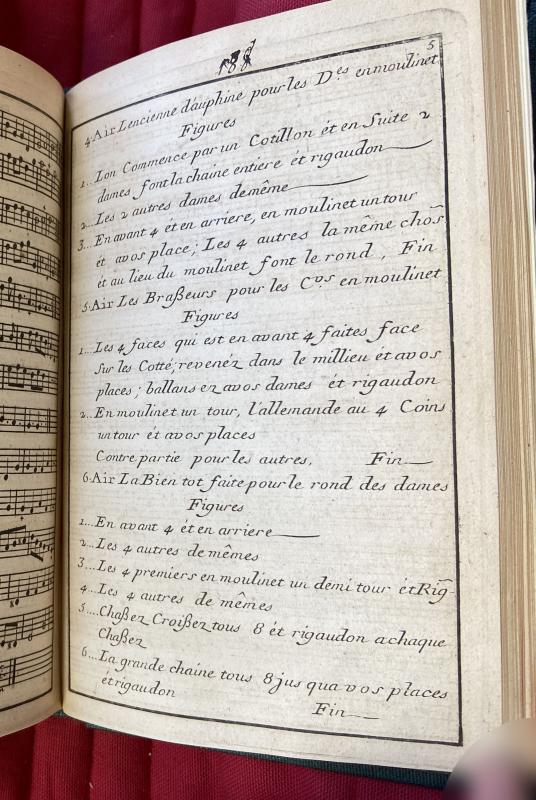 5
4. Air Lencienne d'auphine pour les D.es en moulinet
Figures
1... Lon Commence par un Cotillon ét en Suite 2
dames font la chaine entiere ét rigaudon
2... Les 2 autres dames de même
3... En avant 4 ét en arriere, en moulinet un tour
ét avos place; Les 4 autres la même chos
ét au lieu du moulinet font le rond, Fin
5. Air Les Braßeurs pour les C.vs en moulinet
Figures
1... Les 4 faces qui est en avant 4 faites face
Sur les Cotté, revenéz dans le millieu ét avos
places; ballans ez avos dames ét rigaudon
2... En moulinet un tour, l'allemande au 4 Coins
un tour ét avos places
Contre partie pour les autres, Fin
6. Air La Bien tot faite pour le rond des dames
Figures
1... En avant 4 ét en arriere
2... Les 4 autres de mêmes
3... Les 4 premiers en moulinet un demi tour ét Rig-
4... Les 4 autres de mêmes
5.... Chaßez Croißez tous 8 ét rigaudon a chaque
Chaßez
6... La grande chaine tous 8 jus qua vos places
ét rigaudon
Fin